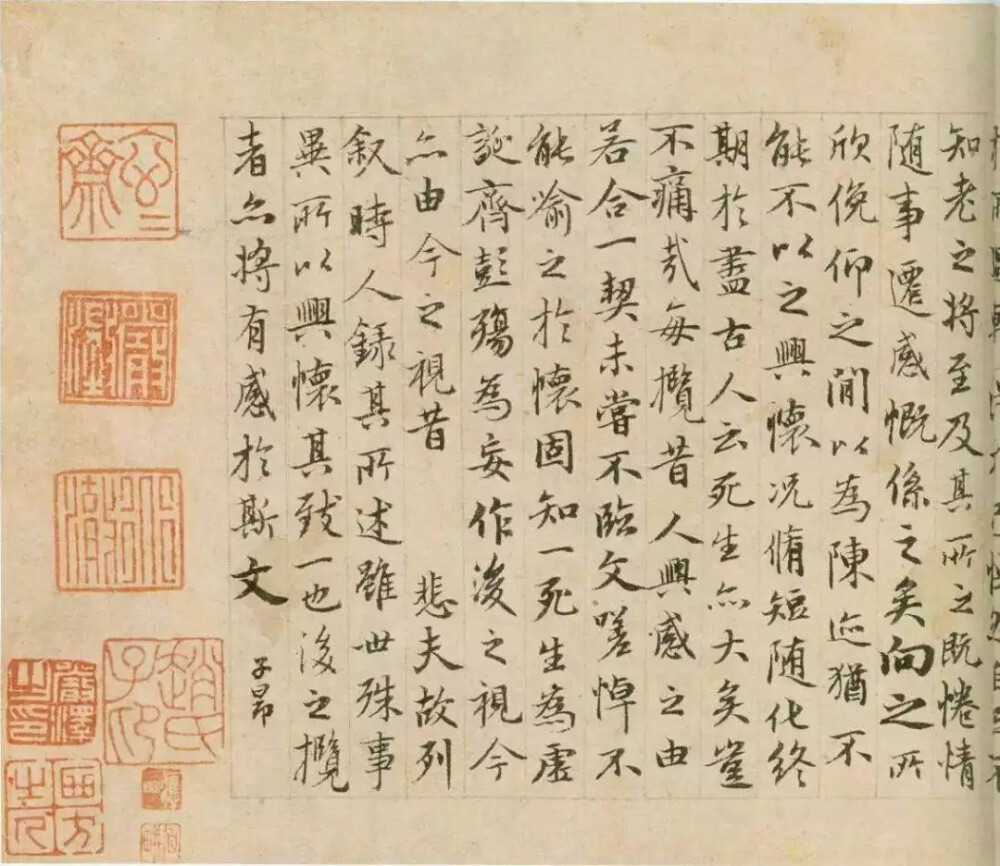 知老之将至及其所之既惓情
随事遷感慨係之矣向之所
欣俛仰之間以為陳迹猶不
能不以之興懷况脩短随化終
期於盡古人云死生亦大矣豈
不痛哉每攬昔人興感之由
若合一契未嘗不臨文嗟悼不
能喻之於懷固知一死生為虚
誕齊彭殤為妄作後之視今
亦由今之視昔 悲夫故列
叙時人録其所述雖世殊事
異所以興懷其致一也後之攬
者亦將有感於斯文
子昂
趙氏子昂